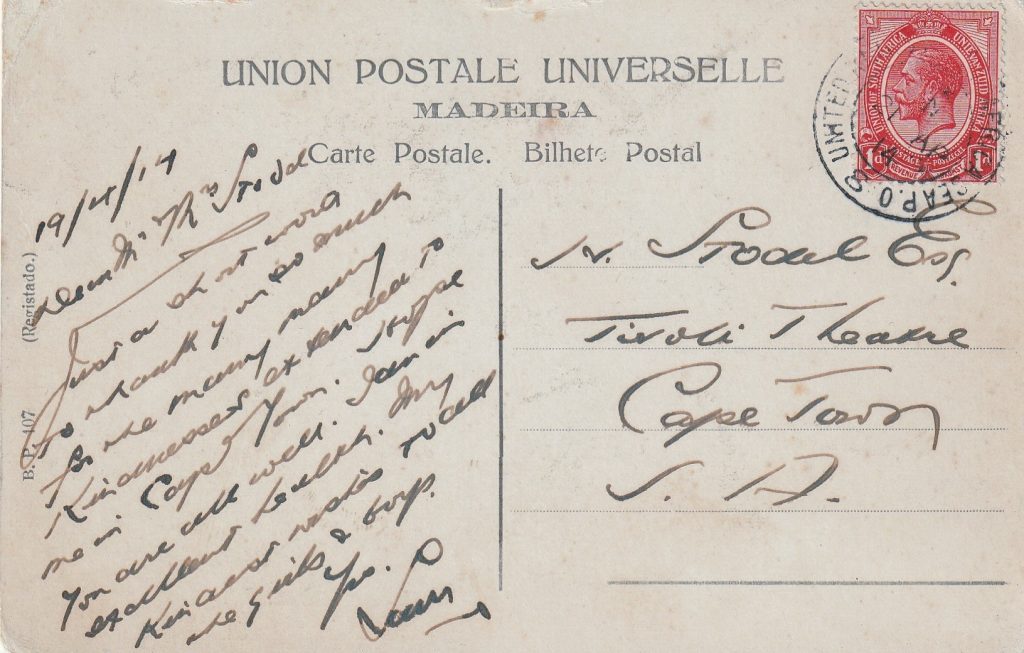 UNION POSTALE UNIVERSELLE
MADEIRA
Carte Postale. Bilhete Postal
UNION OF SOUTH AFRICA UNIE VAN ZUID AFRIKA
POSTAGE POSTZEGEL
REVENUE INKOMST
1d 1d
SEAP.O. UNITED
B. P. 407 (Registado.)
19/4/14
Dear Mr & Mrs Stodel
Just a short word
to thank you so much
for the many many
kindnesses extended to
me in Cape Town. I hope
you are all well. I am in
excellent health. My
kindest wishes to all
the girls & boys.
Yrs.
Stodel Esq.
Tivoli Theatre
Cape Town
S. A.